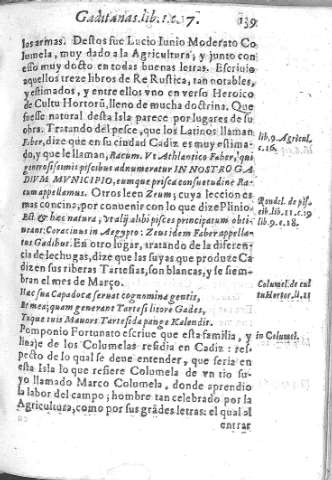 Gaditanas. lib. 1. c. 7. 139
los armas. Destos fue Lucio Iunio Moderato Co
lumela, muy dado a la Agricultura, y junto con
esso muy docto en todas buenas letras. Escriuio
aquellos treze libros de Re Rustica, tan notables,
y estimados, y entre ellos vno en verso Heroico
de Cultu Hortorũ, lleno de mucha doctrina. Que
fuesse natural desta Isla parece por lugares de su
obra. Tratando del pesce, que los Latinos llaman
Faber, dize que en su ciudad Cadiz es muy estima-
do, y que le llaman, Zacum. Vt Athlantico Faber, qui
generosissimis piscibus adnumeratur IN NOSTRO GA
DIVM MVNICIPIO, eumque prisca consuetudine Ra
cum appellamus. Otros leen Zeum; cuya leccion es
mas concina, por conuenir con lo que dize Plinio.
Est & hac natura, vt alij alibi pisces principatum obti-
nent: Coracinus in Aegypto: Zeus idem Faber appella-
tus Gadibus. En otro lugar, tratando de la diferen-
cia de lechugas, dize que las suyas que produze Ca
dizen sus riberas Tartesias, son blancas, y se siem-
bran el mes de Março.
Hac sua Capadoca seruat cognomina gentis,
Et mea; quam generant Tartesi litore Gades,
Tuque tuis Mauors Tartesida pange Kalendis.
Pomponio Fortunato escriue que esta familia, y
linaje de los Columelas residia en Cadiz: res-
pecto de lo qual se deue entender, que seria en
esta Isla lo que refiere Columela de vn tio su-
yo llamado Marco Columela, donde aprendio
la labor del campo; hombre tan celebrado por la
Agricultura, como por sus grãdes letras: el qual al
entrar
lib. 9. Agricul.
c. 16.
Rondel. de pis-
cib. lib. 11. c. 19
lib. 9. c. 18.
Columel. de cul
tu Hortor. li. 11
in Columel.